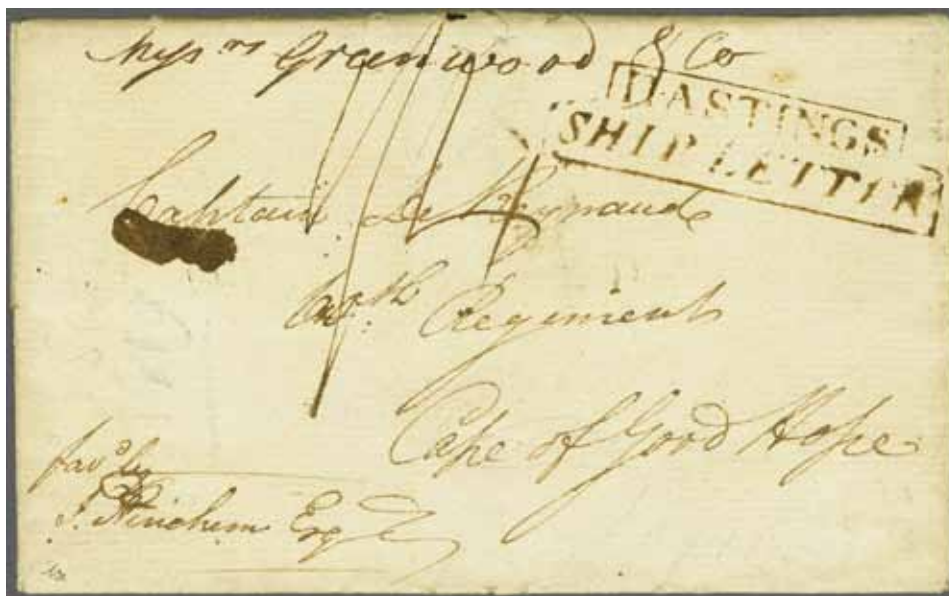 Messrs Greenwood & Co
HASTINGS
SHIP LETTER
Captain De
Regiment
Cape of Good Hope
favd by
J. Esqr